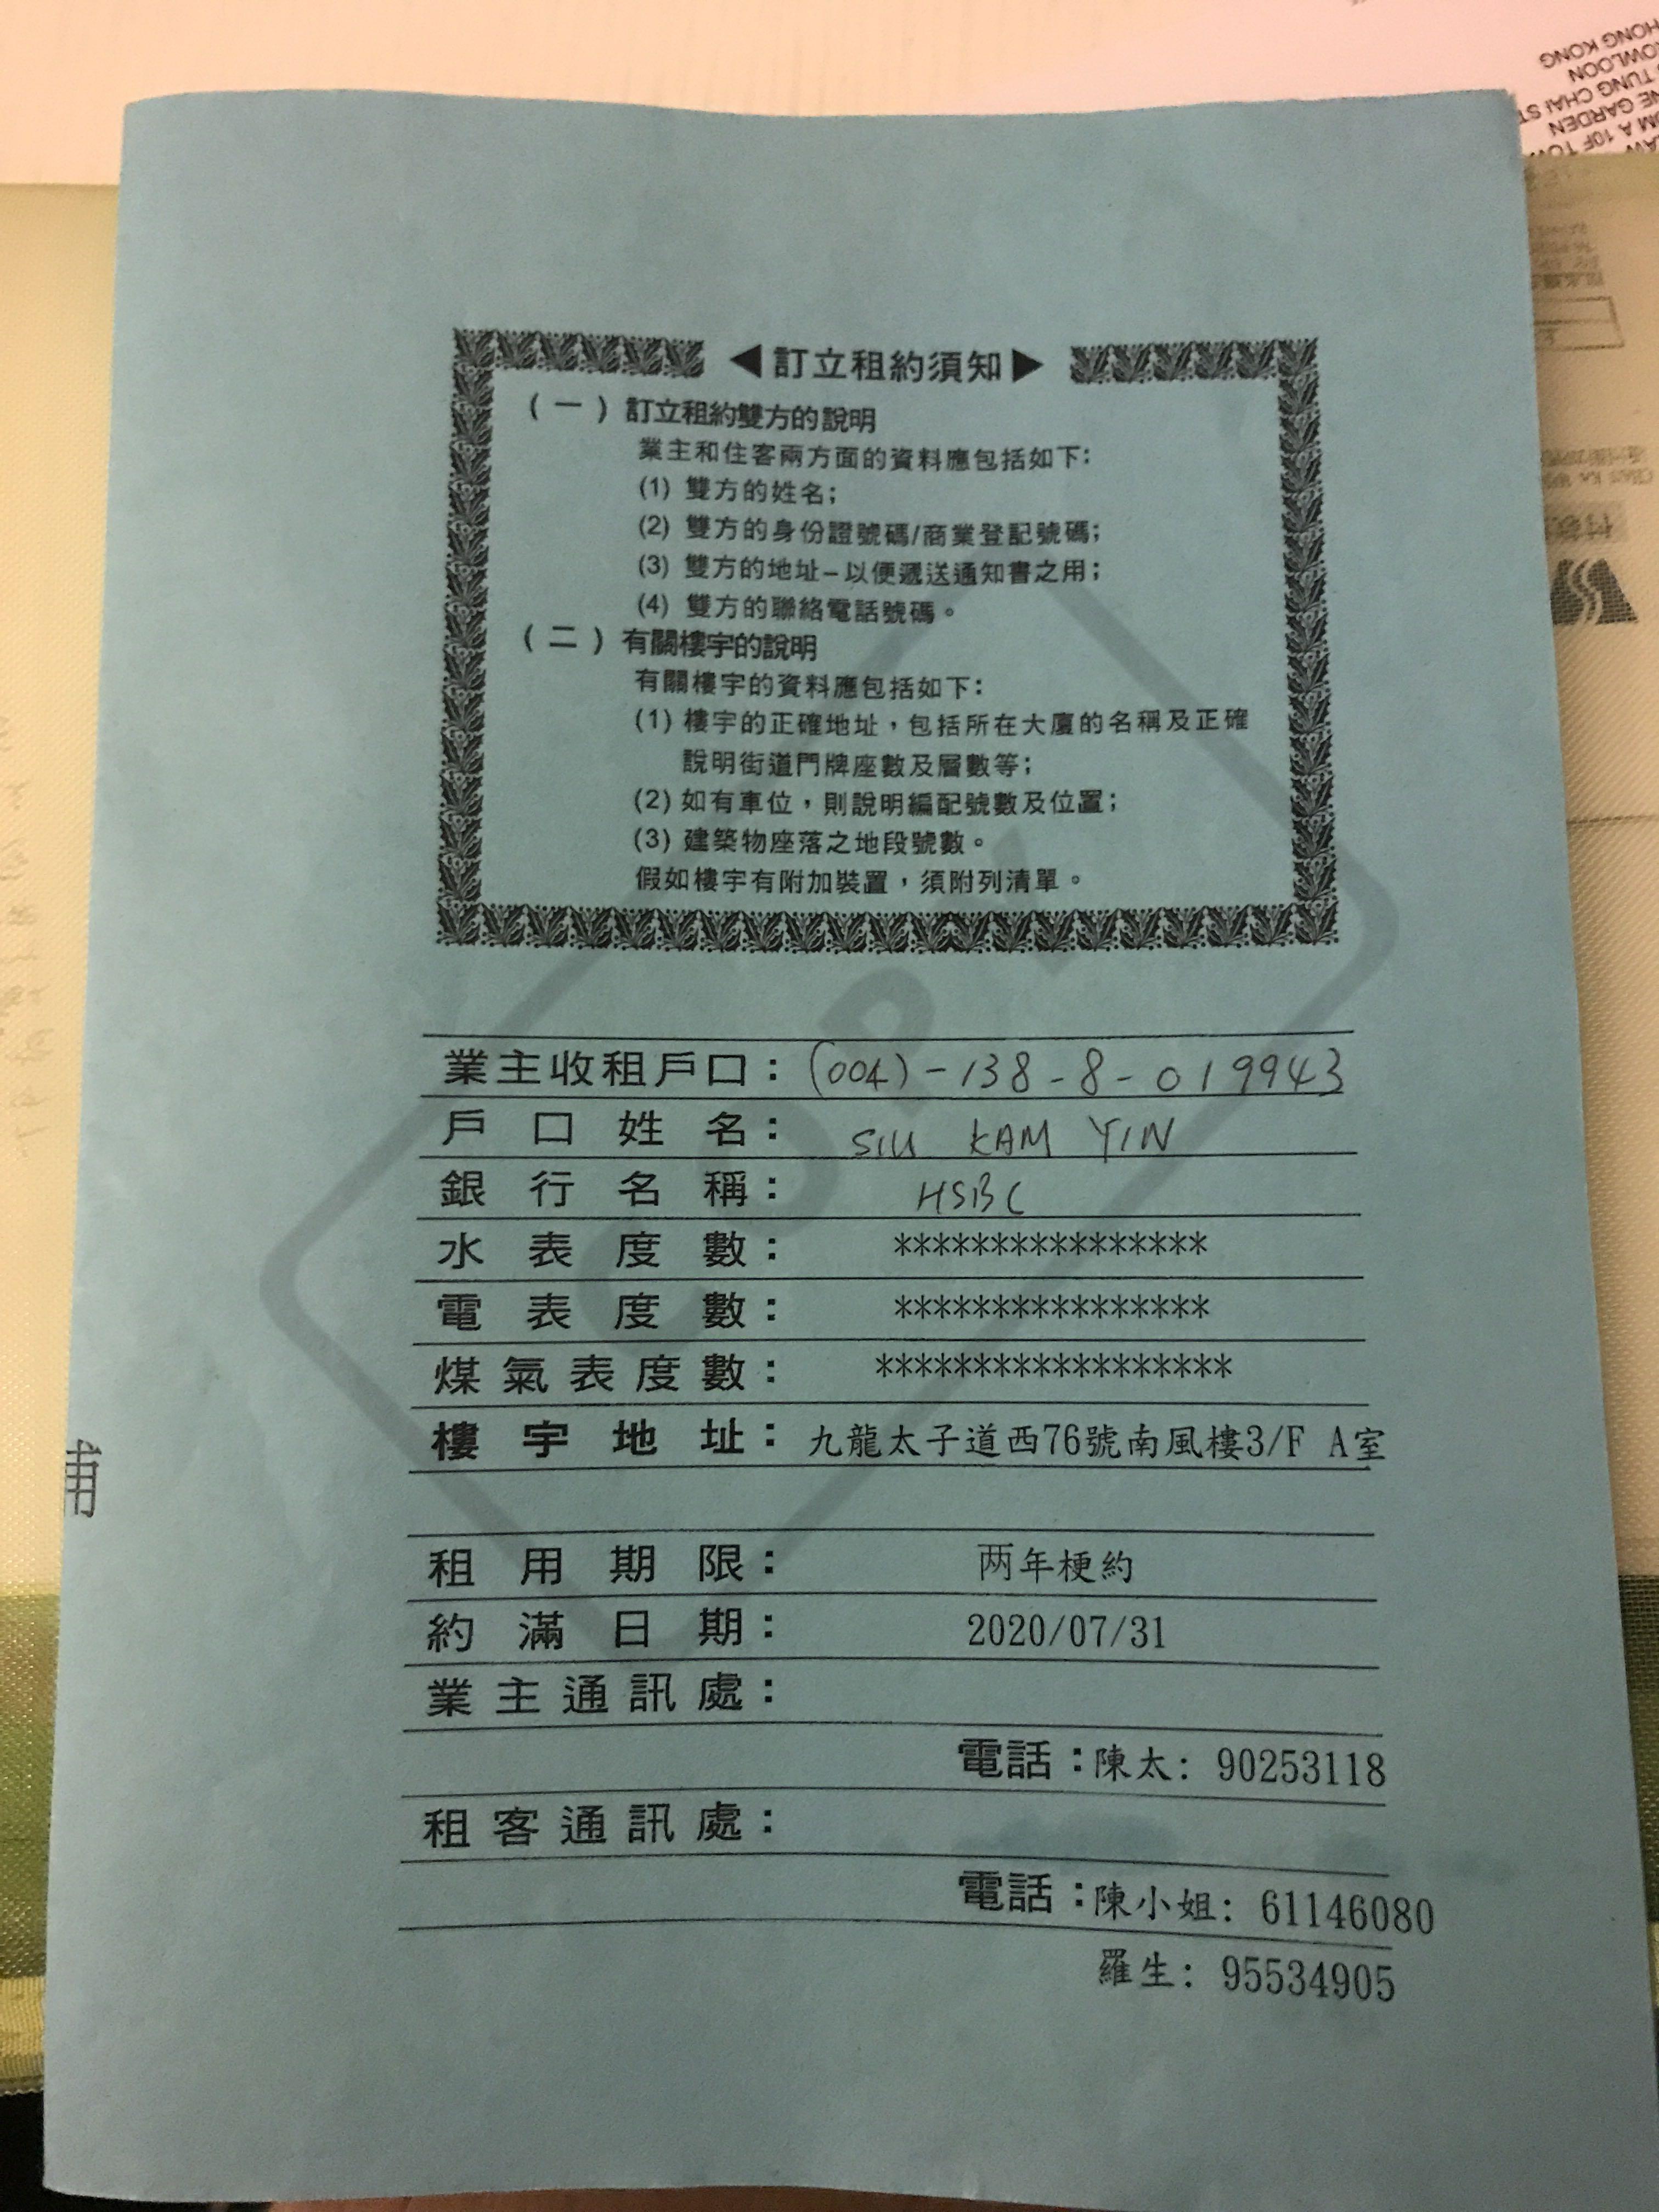 HONG KONG
OWLOON
TUNG CHAI ST
NE GARDEN
OM A 10F TOW
◀訂立租約須知▶
(一)訂立租約雙方的說明
業主和住客兩方面的資料應包括如下:
(1) 雙方的姓名;
(2) 雙方的身份證號碼/商業登記號碼;
(3) 雙方的地址–以便遞送通知書之用;
(4) 雙方的聯絡電話號碼。
(二)有關樓宇的說明
有關樓宇的資料應包括如下:
(1) 樓宇的正確地址,包括所在大廈的名稱及正確
說明街道門牌座數及層數等;
(2) 如有車位,則說明編配號數及位置;
(3) 建築物座落之地段號數。
假如樓宇有附加裝置,須附列清單。
COPY
業主收租戶口:(004)-138-8-019943
戶口姓名:SIU KAM YIN
銀行名稱:HSBC
水表度數:****************
電表度數:****************
煤氣表度數:******************
樓宇地址:九龍太子道西76號南風樓3/F A室
租用期限:两年梗約
約滿日期:2020/07/31
業主通訊處:
電話:陳太: 90253118
租客通訊處:
電話:陳小姐: 61146080
羅生: 95534905